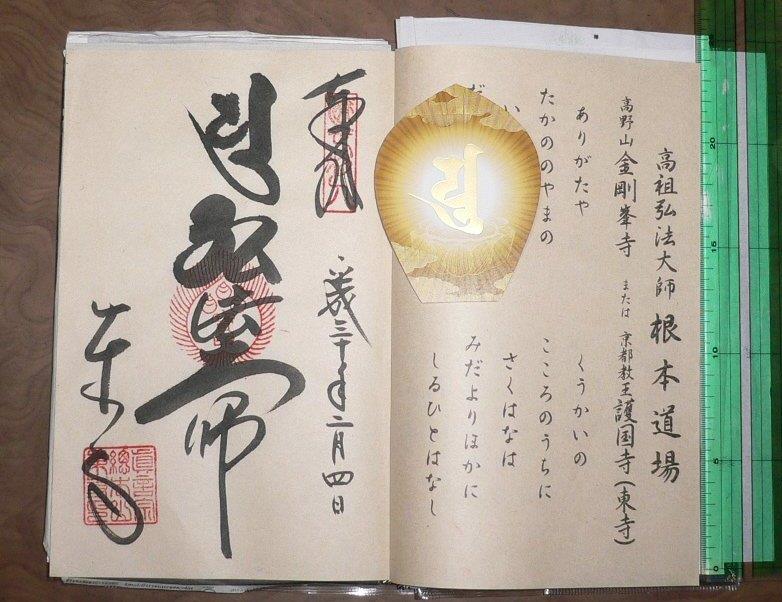 高祖弘法大師 根本道場
高野山金剛峯寺 または 京都教王護国寺(東寺)
ありがたや
たかののやまの
い
だ
くうかいの
こころのうちに
さくはなは
みだよりほかに
しるひとはなし
奉拝
平成三十年二月四日
弘法大師
東寺
眞言宗
總本山
東寺
20
15
10
5
0